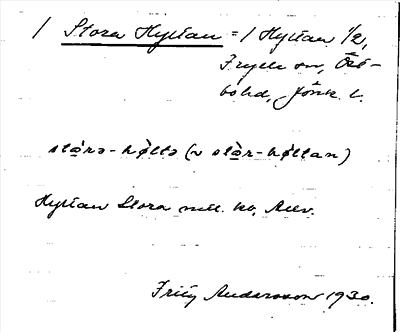 1 Stora Hyltan = 1 Hyltan 1/2,
Fryele sn, Öst-
bo hd, Jönk. l.
stòrə-hø̀ltə (~ stòr-hø̀ltan)
Hyltan Stora
Fritz Andersson 1930.